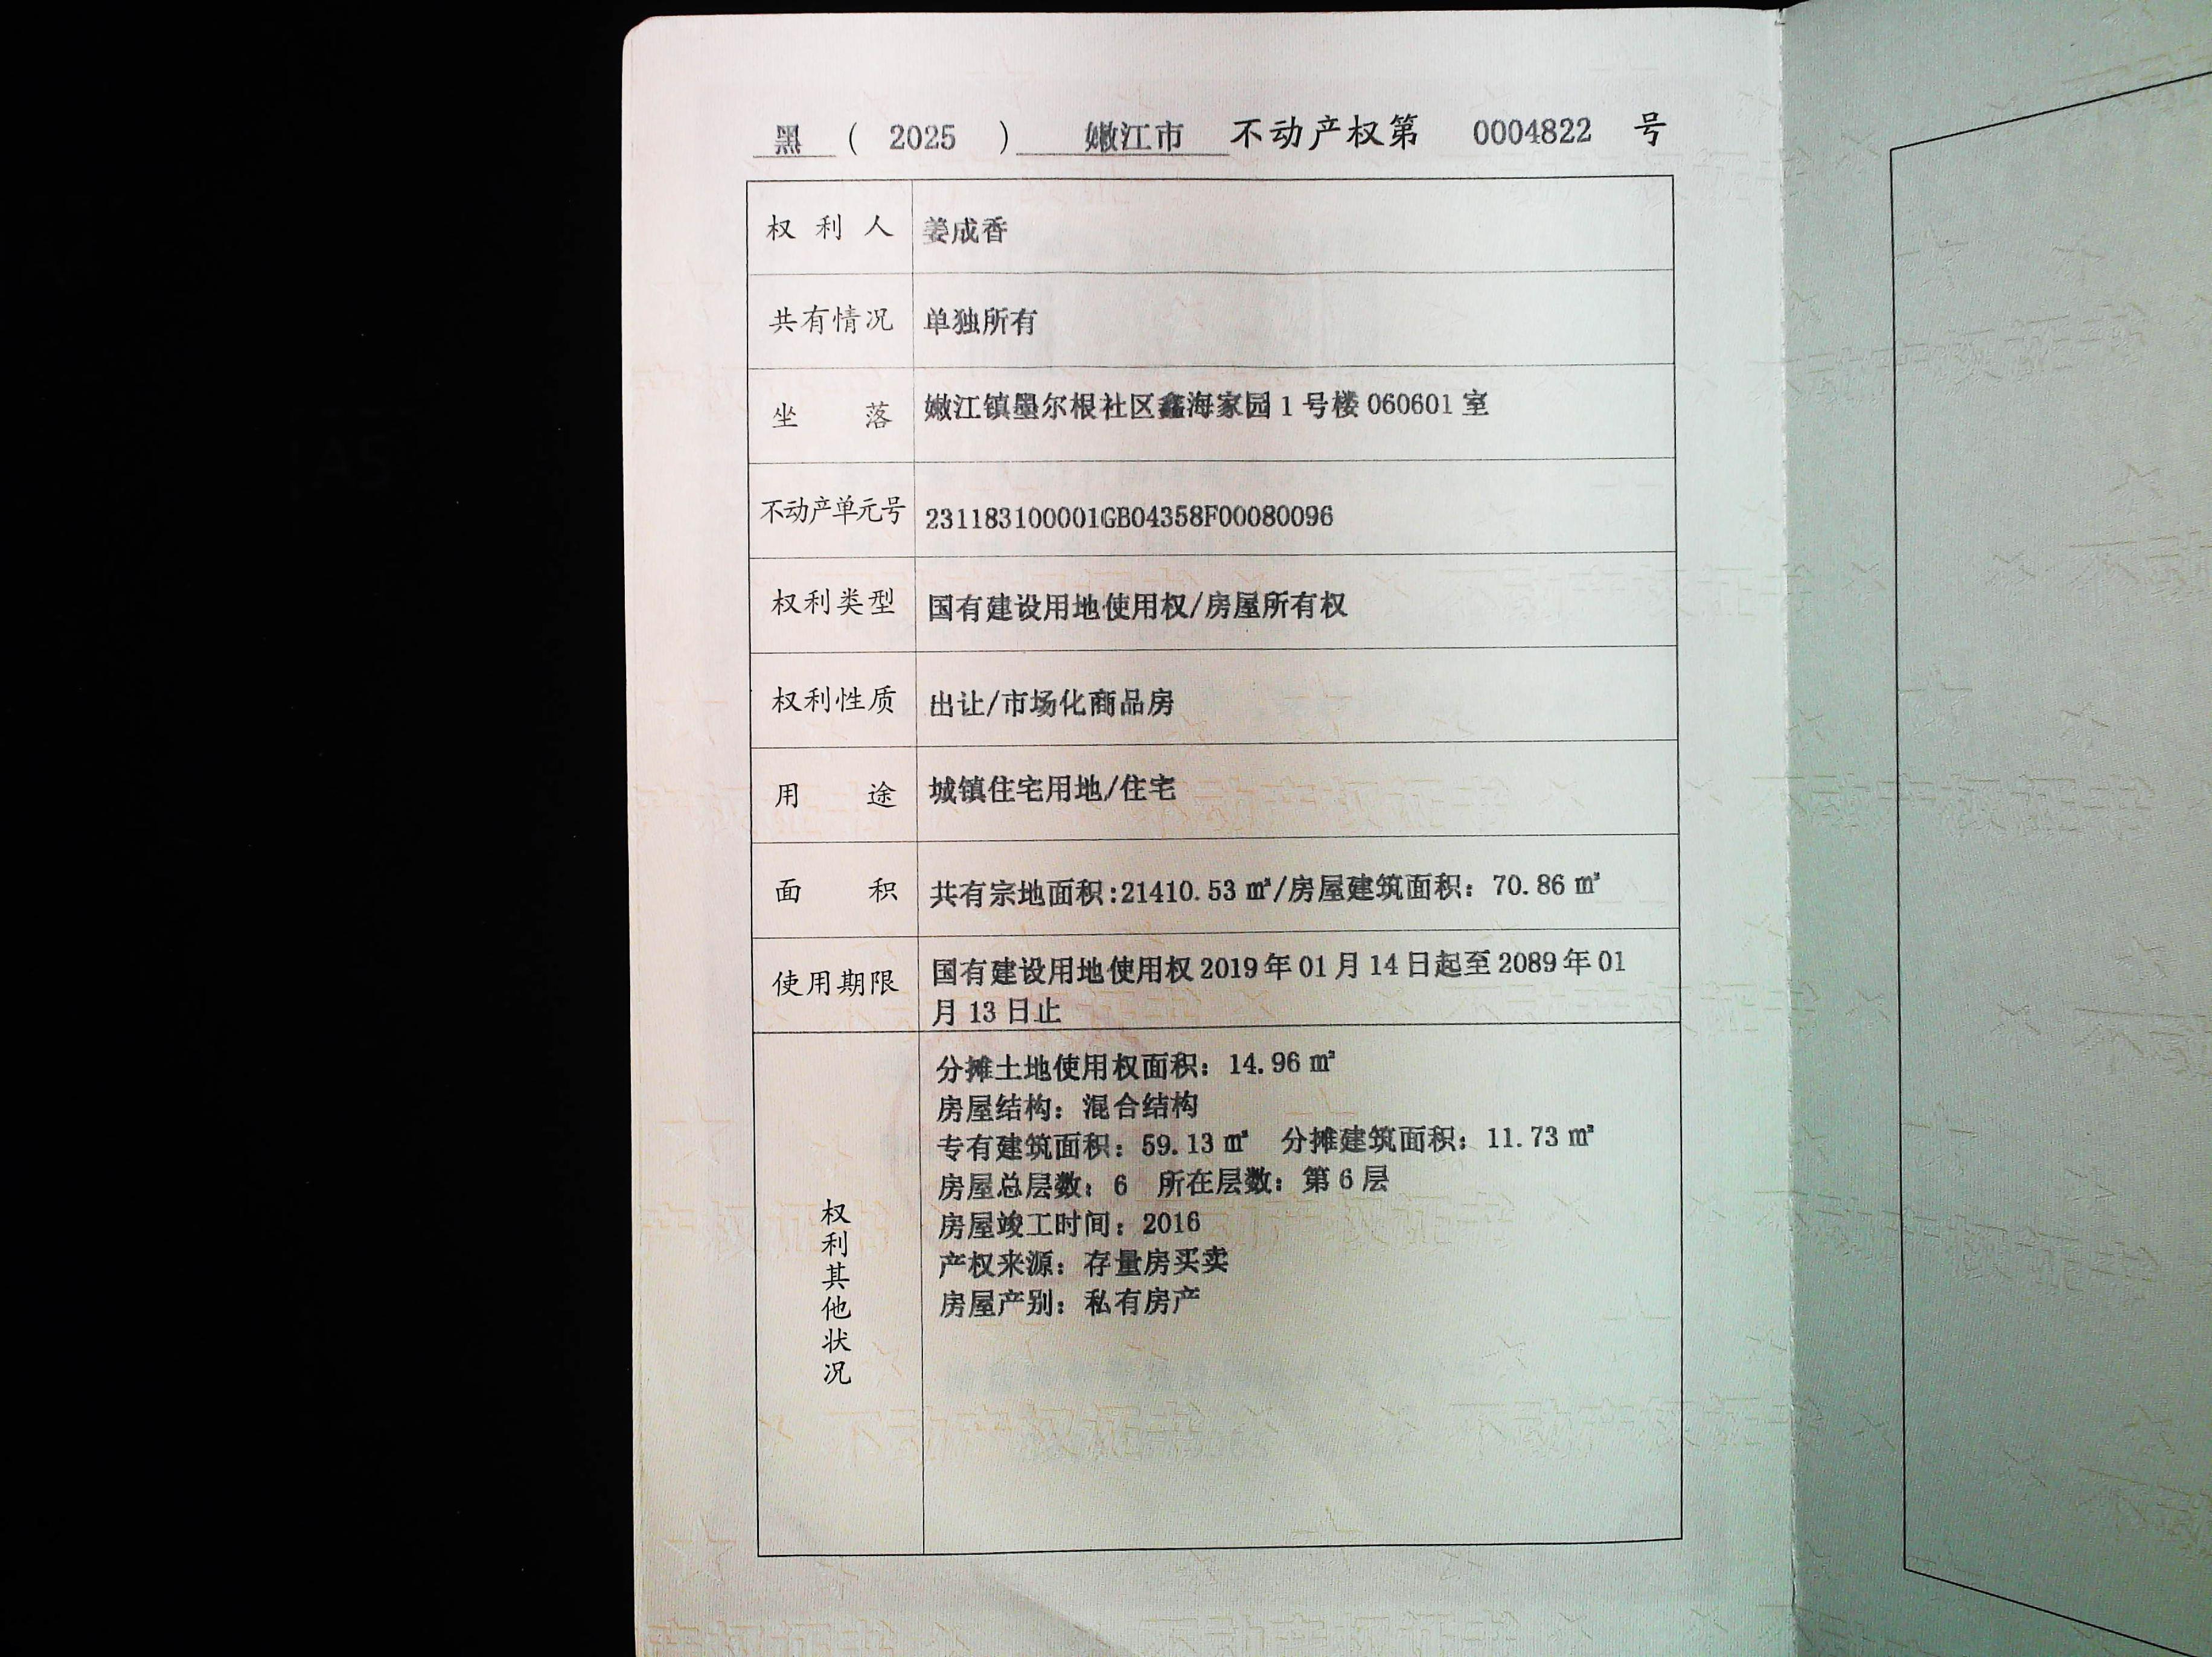 黑 ( 2025 ) 嫩江市 不动产权第 0004822 号
权利人 姜成香
共有情况 单独所有
坐落 嫩江镇墨尔根社区鑫海家园 1 号楼 060601 室
不动产单元号 231183100001GB04358F00080096
权利类型 国有建设用地使用权/房屋所有权
权利性质 出让/市场化商品房
用途 城镇住宅用地/住宅
面积 共有宗地面积:21410.53 ㎡/房屋建筑面积：70.86 ㎡
使用期限 国有建设用地使用权 2019 年 01 月 14 日起至 2089 年 01
月 13 日止
权利其他状况
分摊土地使用权面积：14.96 ㎡
房屋结构：混合结构
专有建筑面积：59.13 ㎡ 分摊建筑面积：11.73 ㎡
房屋总层数：6 所在层数：第 6 层
房屋竣工时间：2016
产权来源：存量房买卖
房屋产别：私有房产